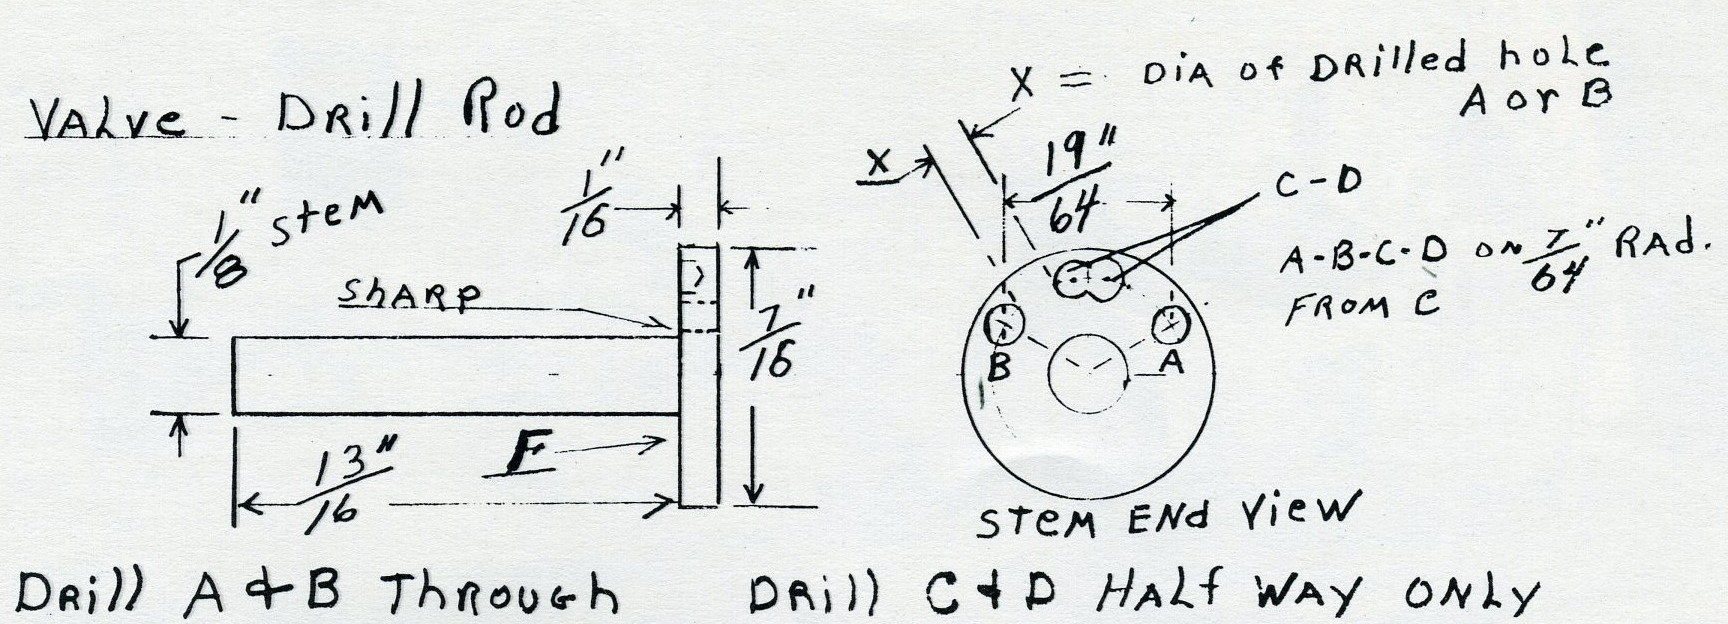 VALVe - DRill Rod
X = DiA of DRilled hoLe
A or B
1/8" steM
1/16"
X
19/64"
C-D
A-B-C-D ON 7/64" RAd.
FROM C
ShARP
7/16"
B
A
F
13/16"
steM ENd View
DRill A & B ThRough
DRill C & D HALf WAY ONLy